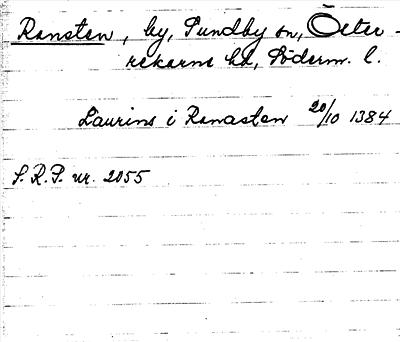 Ransten, by, Sundby sn, Öster-
rekarne hd, Söderm. l.
Laurins i Ranasten 20/10 1384
S.R.P. nr. 2055